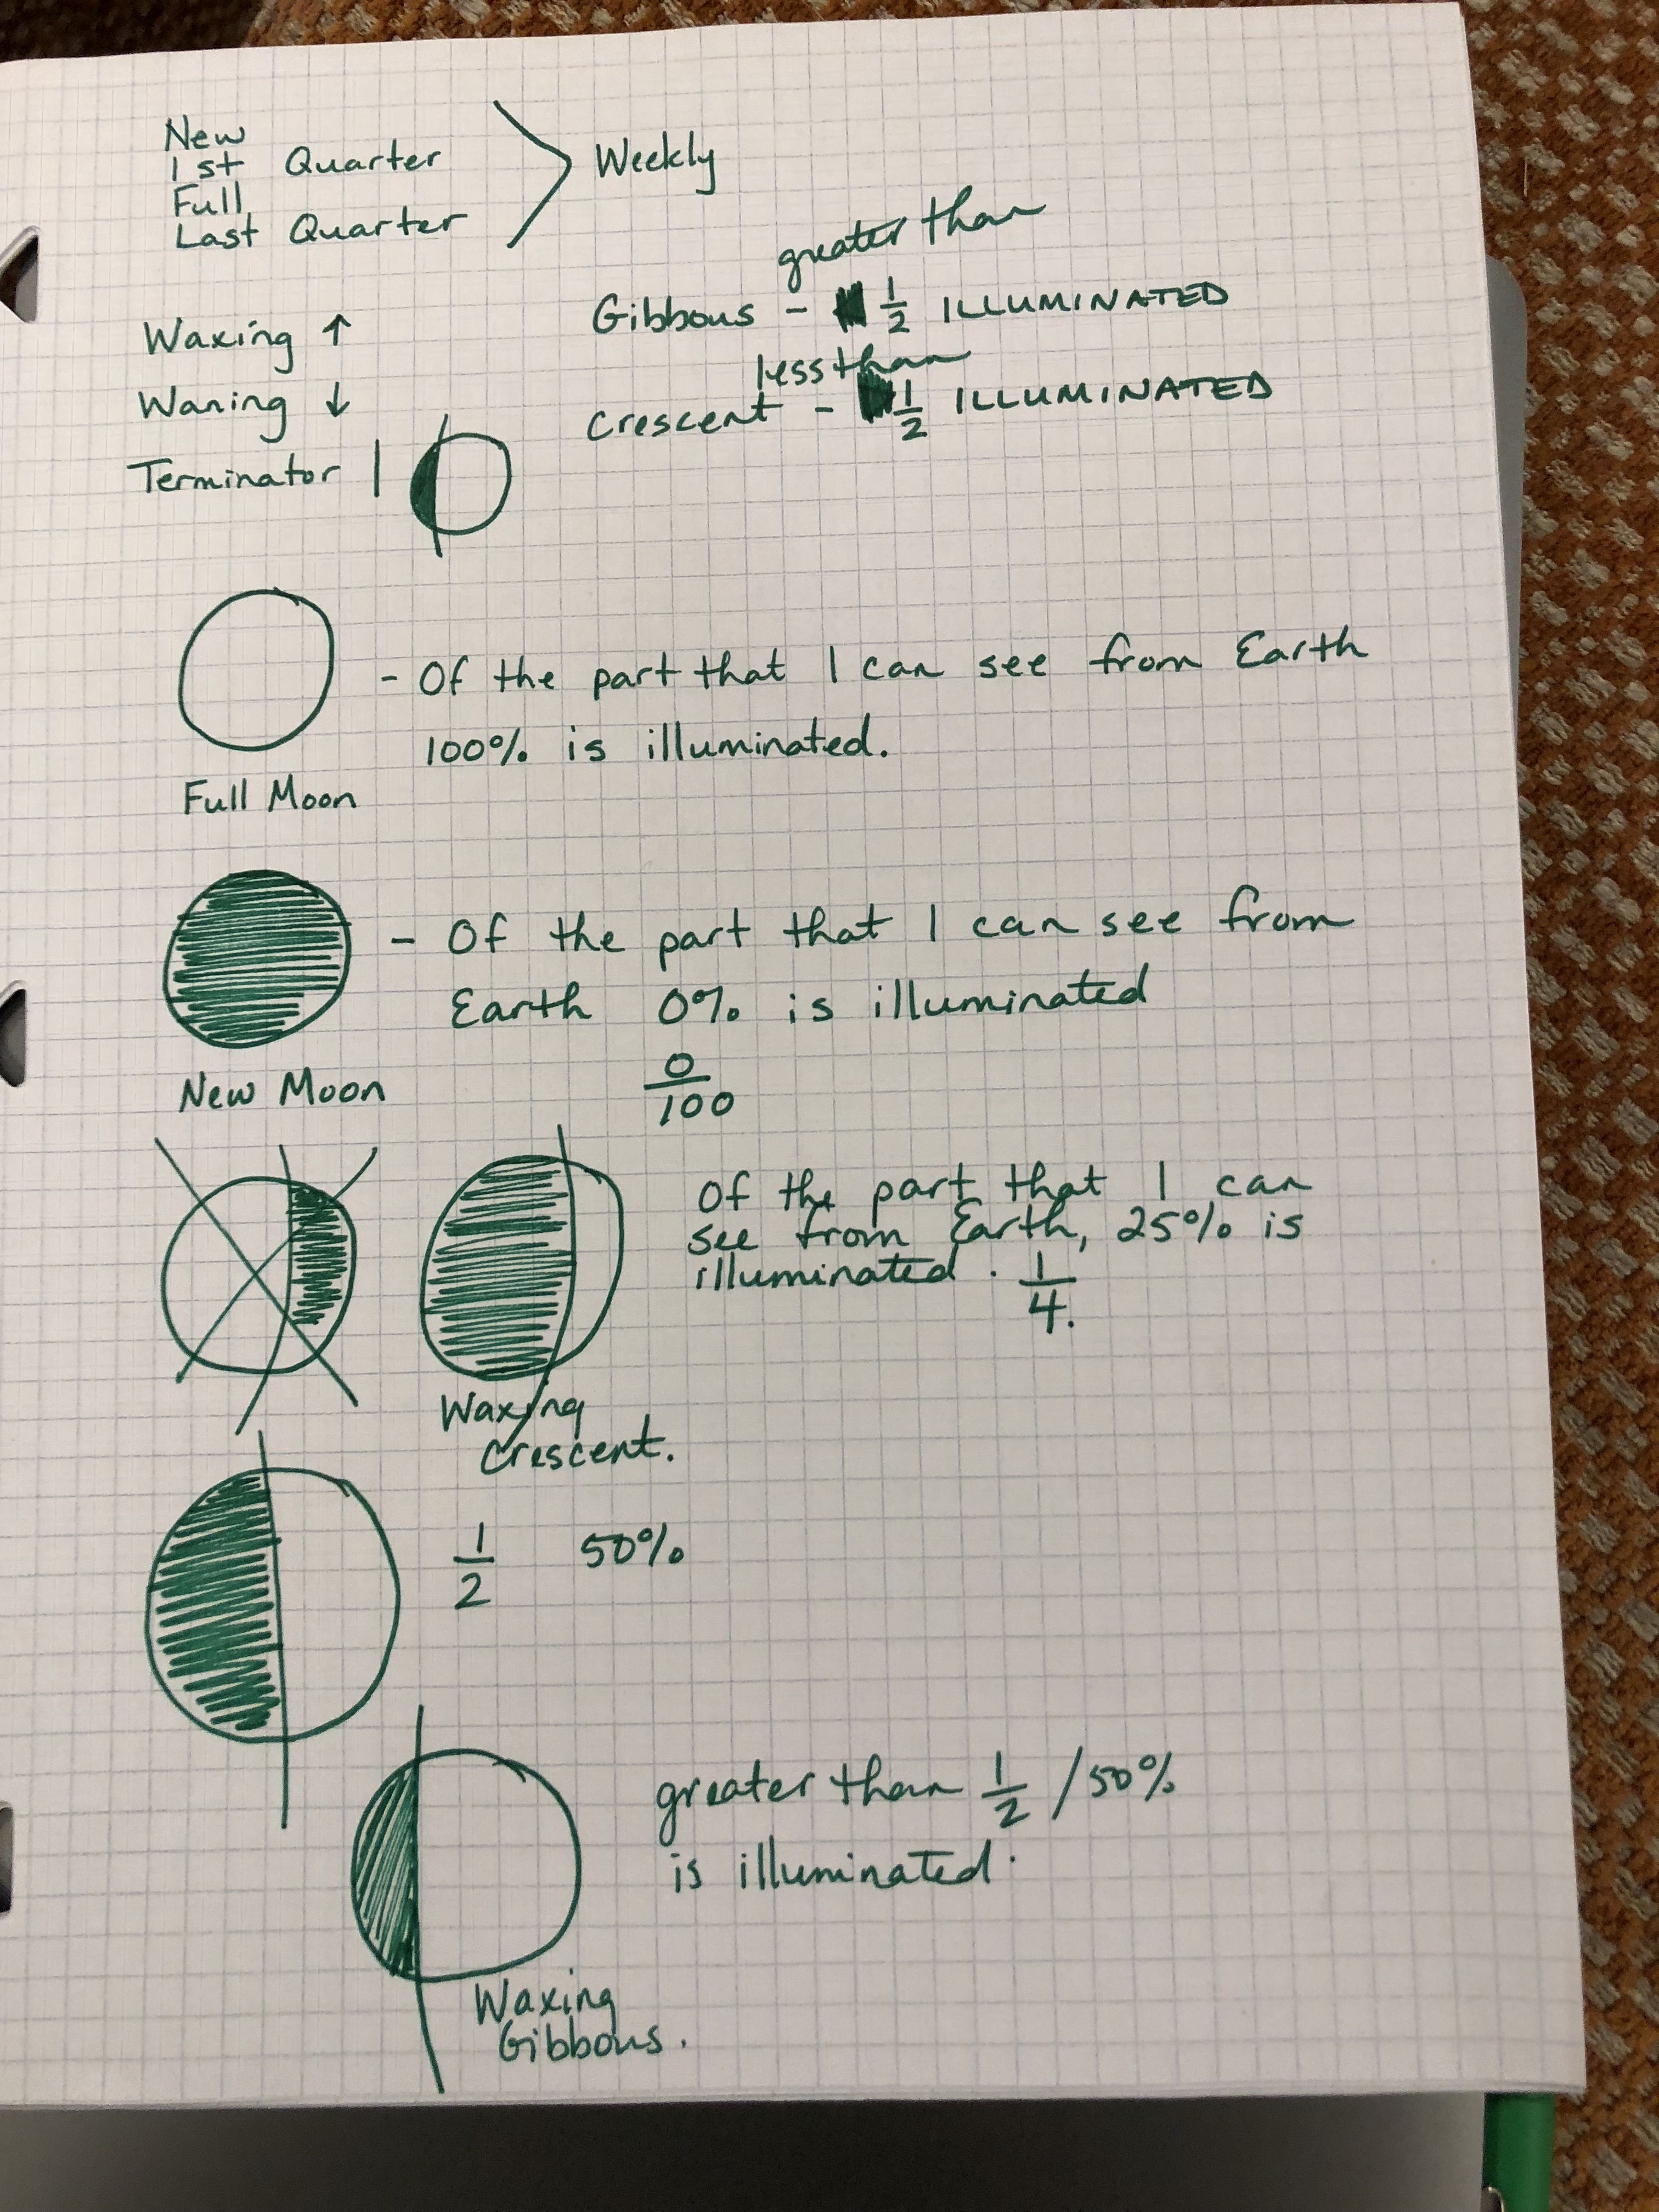 New
1st Quarter
Full
Last Quarter
Weekly
greater than
Gibbous - 1/2 ILLUMINATED
less than
Crescent - 1/2 ILLUMINATED
Waxing ↑
Waning ↓
Terminator |
- Of the part that I can see from Earth
100% is illuminated.
Full Moon
- Of the part that I can see from
Earth 0% is illuminated
0/100
New Moon
Of the part that I can
see from Earth, 25% is
illuminated. 1/4.
Waxing
Crescent.
1/2 50%
greater than 1/2 / 50%
is illuminated.
Waxing
Gibbous.